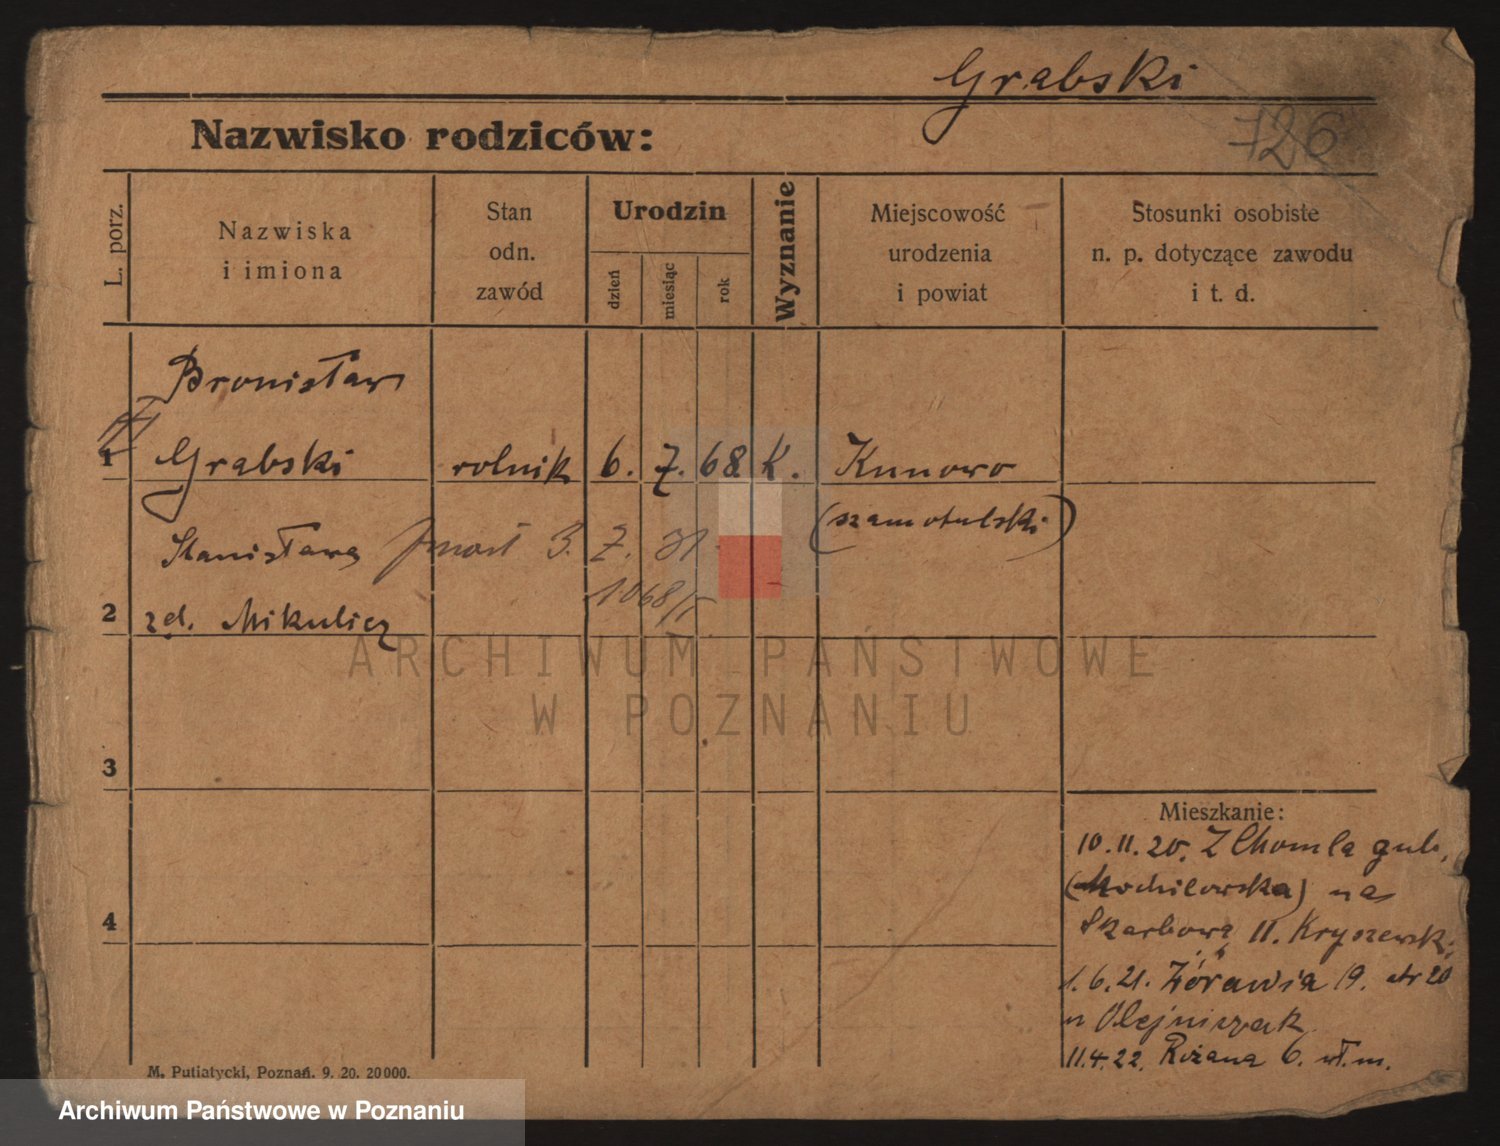 Grabski
726
Nazwisko rodziców:
L. porz.
Nazwiska
i imiona
Stan
odn.
zawód
Urodzin
dzień
miesiąc
rok
Wyznanie
Miejscowość
urodzenia
i powiat
Stosunki osobiste
n. p. dotyczące zawodu
i t. d.
Bronisław
1 Grabski rolnik 6. 7. 68 K. Kunowo
(szamotulski)
Stanisława zmarł 3. 7. 31
1068/
2 zd. Mikulicz
ARCHIWUM PAŃSTWOWE
W POZNANIU
3
Mieszkanie:
10.11.20. Z Chomla gub.
(Mochilowska) na
4 Skarbową 11. Kryszewski
1.6.21. Żórawia 19. 20
Olejniczak
11.4.22. Różana 6. wł. m.
M. Putiatycki, Poznań. 9. 20. 20000.
Archiwum Państwowe w Poznaniu